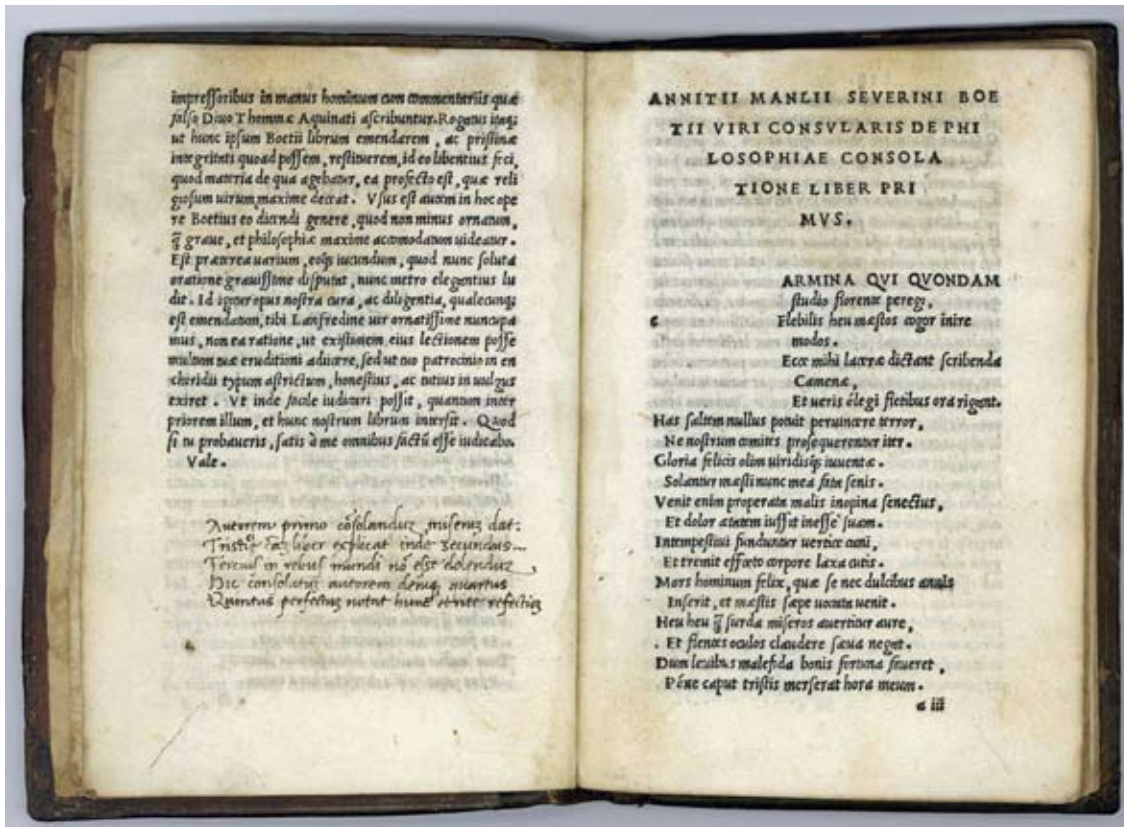 impressoribus in manus hominum cum commentariis quæ
falso Diuo Thommæ Aquinati ascribuntur. Rogatus itaq;
ut hunc ipsum Boetii librum emendarem, ac pristinæ
integritati quoad possem, restituerem, id eo libentius feci,
quod materia de qua agebatur, ea profecto est, quæ reli
giosum uirum maxime deceat. Vsus est autem in hoc ope
re Boetius eo dicendi genere, quod non minus ornatum,
q̃ graue, et philosophiæ maxime accomodatum uideatur.
Est præterea uarium, eoq; iucundum, quod nunc soluta
oratione grauissime disputat, nunc metro elegantius lu
dit. Id igitur opus nostra cura, ac diligentia, qualecunq;
est emendatum, tibi Lanfredine uir ornatissime nuncupa
mus, non ea ratione, ut existimem eius lectionem posse
multum tuæ eruditioni adiicere, sed ut tuo patrocinio in en
chiridii typum astrictum, honestius, ac tutius in uulgus
exiret. Vt inde facile iudicari possit, quantum inter
priorem illum, et hunc nostrum librum intersit. Quod
si tu probaueris, satis à me omnibus factũ esse iudicabo.
Vale.
primo cõsolanduz miseruz dat:
liber explicat inde secundus
Tercius in rebus mundi nõ esse dolenduz
Hic consolatur autorem deniq; quartus
Quintus perfectuz notat hunc
ANNITII MANLII SEVERINI BOE
TII VIRI CONSVLARIS DE PHI
LOSOPHIAE CONSOLA
TIONE LIBER PRI
MVS.
ARMINA QVI QVONDAM
studio florente peregi,
c Flebilis heu mæstos cogor inire
modos.
Ecce mihi laceræ dictant scribenda
Camenæ,
Et ueris élegi fletibus ora rigant.
Has saltem nullus potuit peruincere terror,
Ne nostrum comites prosequerentur iter.
Gloria felicis olim uiridisq; iuuentæ.
Solantur mæsti nunc mea fata senis.
Venit enim properata malis inopina senectus,
Et dolor ætatem iussit inesse suam.
Intempestiui funduntur uertice cani,
Et tremit effœto corpore laxa cutis.
Mors hominum felix, quæ se nec dulcibus annis
Inserit, et mæstis sæpe uocata uenit.
Heu heu q̃ surda miseros auertitur aure,
Et flentes oculos claudere sæua negat.
Dum leuibus malefida bonis fortuna faueret,
Péne caput tristis merserat hora meum.
a iii